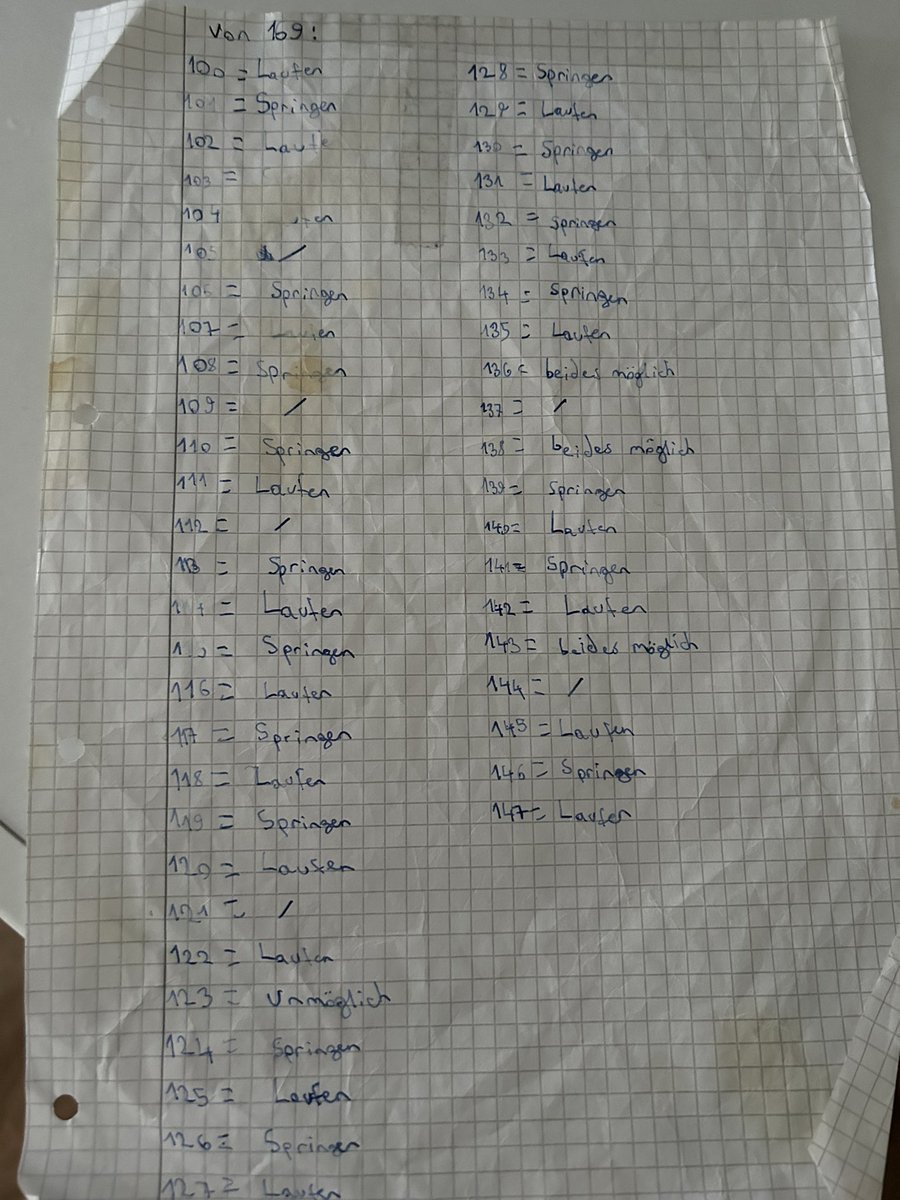 Von 169:
100 = Laufen
101 = Springen
102 = Laufe
103 =
104
105 /
106 = Springen
107 = Laufen
108 = Springen
109 = /
110 = Springen
111 = Laufen
112 = /
113 = Springen
= Laufen
= Springen
116 = Laufen
117 = Springen
118 = Laufen
119 = Springen
120 = Laufen
121 = /
122 = Laufen
123 = Unmöglich
124 = Springen
125 = Laufen
126 = Springen
127 = Laufen
128 = Springen
129 = Laufen
130 = Springen
131 = Laufen
132 = Springen
133 = Laufen
134 = Springen
135 = Laufen
136 = beides möglich
137 = /
138 = beides möglich
139 = Springen
140 = Laufen
141 = Springen
142 = Laufen
143 = beides möglich
144 = /
145 = Laufen
146 = Springen
147 = Laufen